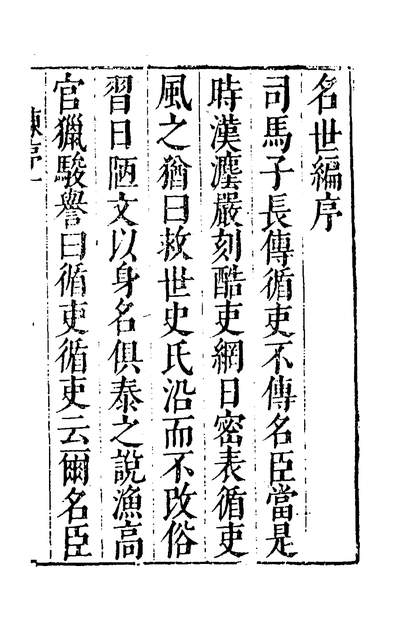 名世編序
司馬子長傳循吏不傳名臣當是
時漢廛嚴刻酷吏網日密表循吏
風之猶曰救世史氏沿而不改俗
習日陋文以身名俱泰之說漁高
官獵駿譽曰循吏循吏云爾名臣
陳序一